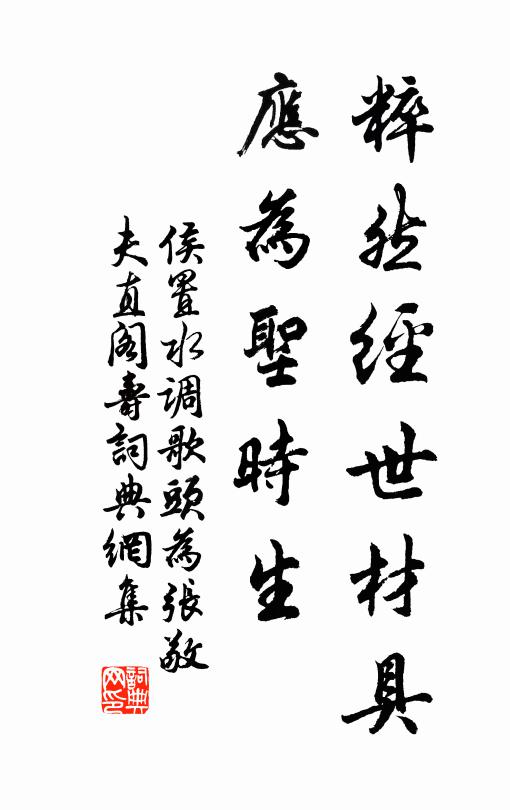 粹然經世材具
應為聖時生
侯置水调歌頭為張敬
夫直阁壽詞典網集
詞典
网印